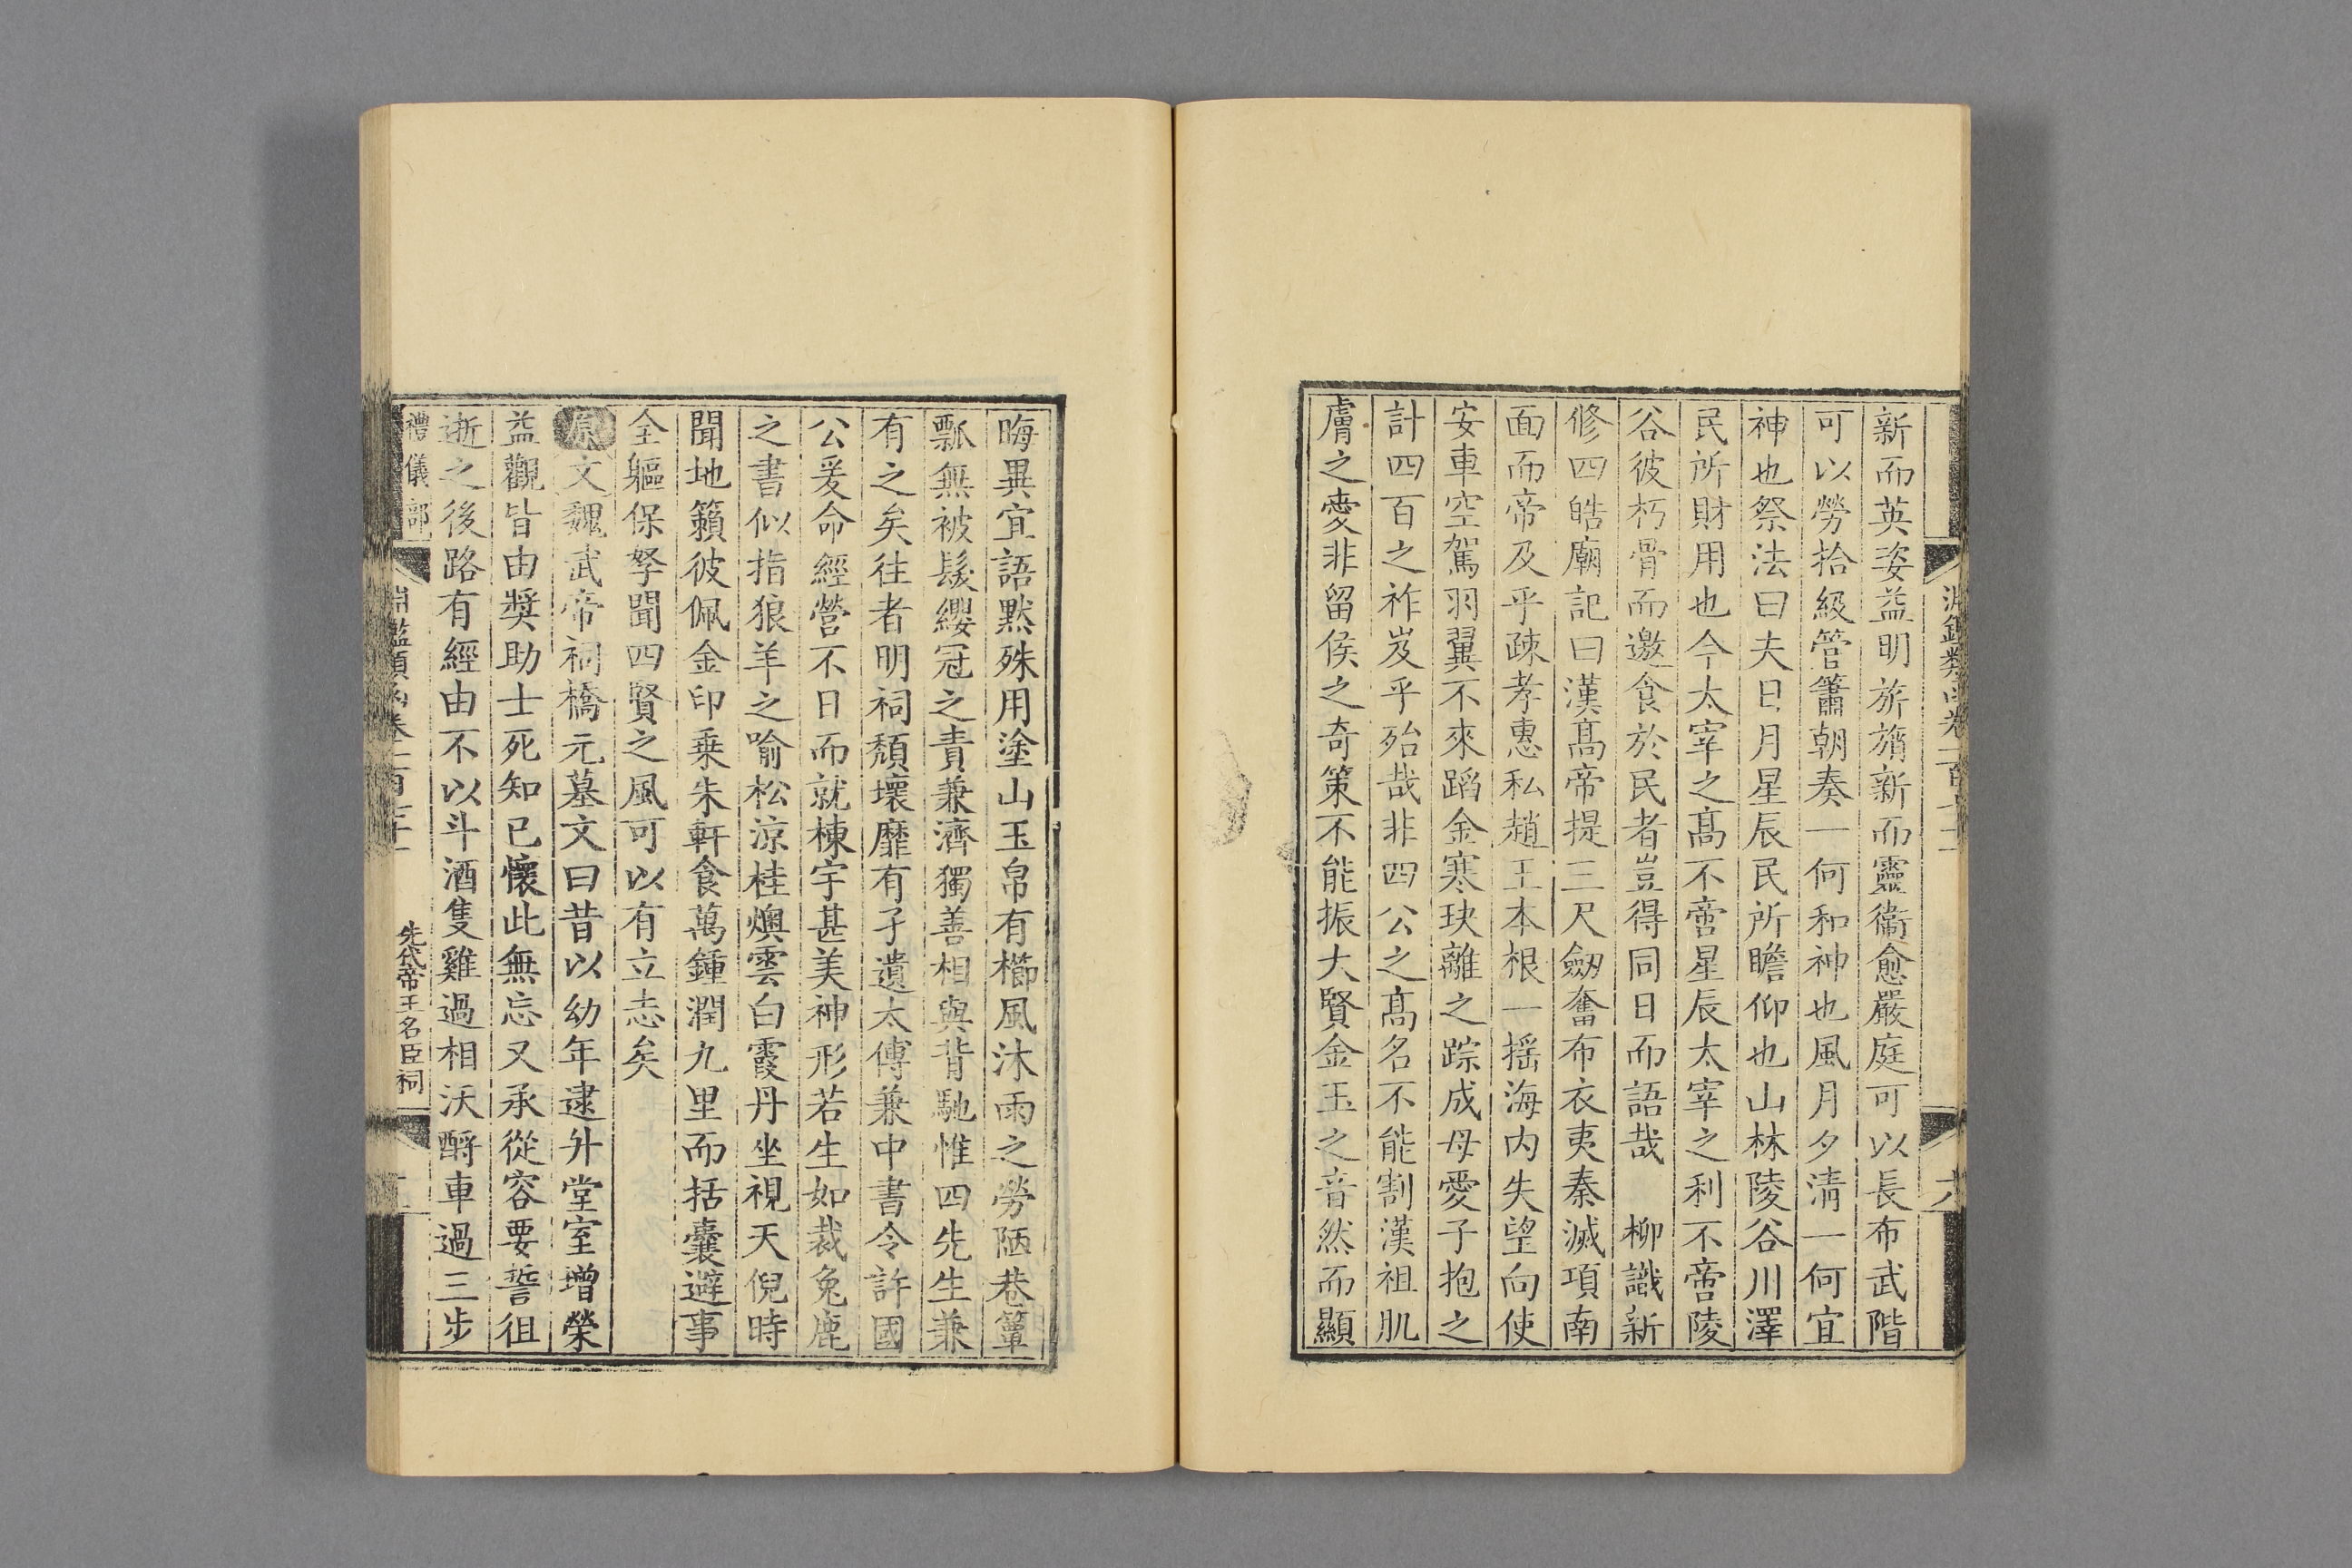 新而英姿益明旂旒新而靈衛愈嚴庭可以長布武階
可以勞拾級管簫朝奏一何和神也風月夕清一何宜
神也祭法曰夫日月星辰民所瞻仰也山林陵谷川澤
民所財用也今太宰之高不啻星辰太宰之利不啻陵
谷彼朽骨而邀食於民者豈得同日而語哉 柳識新
修四皓廟記曰漢高帝提三尺劒奮布衣夷秦滅項南
面而帝及乎疎孝惠私趙王本根一搖海内失望向使
安車空駕羽翼不來蹈金寒玦離之踪成母愛子抱之
計四百之祚岌乎殆哉非四公之高名不能割漢祖肌
膚之愛非留侯之奇策不能振大賢金玉之音然而顯
晦異宜語默殊用塗山玉帛有櫛風沐雨之勞陋巷簞
瓢無被髮纓冠之責兼濟獨善相與背馳惟四先生兼
有之矣往者明祠頽壞靡有孑遺太傅兼中書令許國
公爰命經營不日而就棟宇甚美神形若生如裁兔鹿
之書似指狼羊之喻松涼桂燠雲白霞丹坐視天倪時
聞地籟彼佩金印乘朱軒食萬鍾潤九里而括囊避事
全軀保孥聞四賢之風可以有立志矣
原文魏武帝祠橋元墓文曰昔以幼年逮升堂室增榮
益觀皆由奬助士死知已懷此無忘又承從容要誓徂
逝之後路有經由不以斗酒隻雞過相沃酹車過三步
禮儀部
先代帝王名臣祠